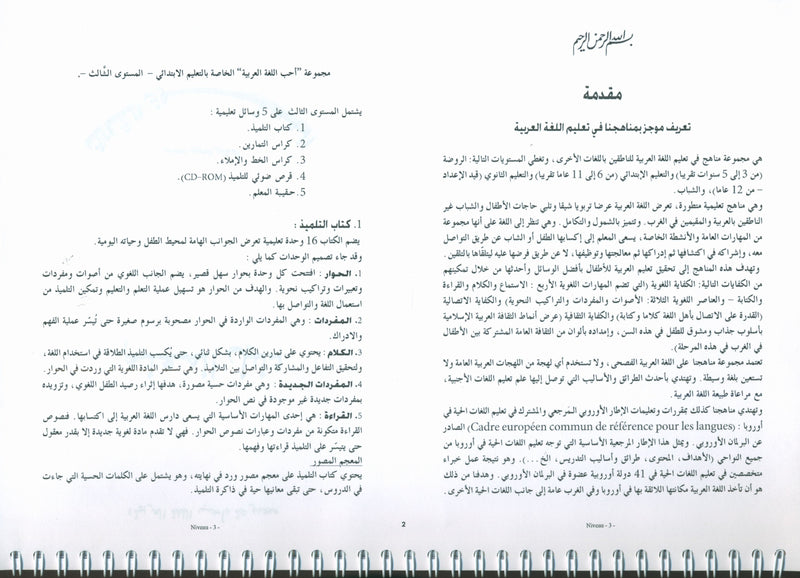 بسم الله الرحمن الرحيم
مقدمة
تعريف موجز بمناهجنا في تعليم اللغة العربية
هي مجموعة مناهج في تعليم اللغة العربية للناطقين باللغات الأخرى، وتغطي المستويات التالية: الروضة
(من 3 إلى 5 سنوات تقريبا) والتعليم الإبتدائي (من 6 إلى 11 عاما تقريبا) والتعليم الثانوي (قيد الإعداد
– من 12 عاما)، والشباب.
وهي مناهج تعليمية متطورة، تعرض اللغة العربية عرضا تربويا شيقا وتلبي حاجات الأطفال والشباب غير
الناطقين بالعربية والمقيمين في الغرب. وتتميز بالشمول والتكامل. وهي تنظر إلى اللغة على أنها مجموعة
من المهارات العامة والأنشطة الخاصة، يسعى المعلم إلى إكسابها الطفل أو الشاب عن طريق التواصل
معه، وإشراكه في اكتشافها ثم إدراكها ثم معالجتها وتوظيفها، لا عن طريق فرضها عليه ليتلقّاها بالتلقين.
وتهدف هذه المناهج إلى تحقيق تعليم العربية للأطفال بأفضل الوسائل وأحدثها من خلال تمكينهم
من الكفايات التالية: الكفاية اللغوية (التي تضم المهارات اللغوية الأربع : الاستماع والكلام والقراءة
والكتابة – والعناصر اللغوية الثلاثة: الأصوات والمفردات والتراكيب النحوية) والكفاية الاتصالية
(القدرة على الاتصال بأهل اللغة كلاما وكتابة) والكفاية الثقافية (عرض أنماط الثقافة العربية الإسلامية
بأسلوب جذاب ومشوق للطفل في هذه السن، وإمداده بألوان من الثقافة العامة المشتركة بين الأطفال
في الغرب في هذه المرحلة).
تعتمد مجموعة مناهجنا على اللغة العربية الفصحى، ولا تستخدم أي لهجة من اللهجات العربية العامة ولا
تستعين بلغة وسيطة. وتهتدي بأحدث الطرائق والأساليب التي توصل إليها علم تعليم اللغات الأجنبية،
مع مراعاة طبيعة اللغة العربية.
وتهتدي مناهجنا كذلك بمقررات وتعليمات الإطار الأوروبي المرجعي والمشترك في تعليم اللغات الحية في
أوروبا : (Cadre européen commun de référence pour les langues) الصادر
عن البرلمان الأوروبي. ويمثل هذا الإطار المرجعية الأساسية التي توجه تعليم اللغات الحية في أوروبا من
جميع النواحي (الأهداف، المحتوى، طرائق وأساليب التدريس، الخ...). وهو نتيجة عمل خبراء
متخصصين في تعليم اللغات الحية في 41 دولة أوروبية عضوة في البرلمان الأوروبي. وهدفنا من ذلك
هو أن تأخذ اللغة العربية مكانتها اللائقة بها في أوروبا وفي الغرب عامة إلى جانب اللغات الحية الأخرى.
Niveau - 3 -
2
مجموعة "أحب اللغة العربية" الخاصة بالتعليم الابتدائي – المستوى الثّالث –.
يشتمل المستوى الثالث على 5 وسائل تعليمية :
1. كتاب التلميذ.
2. كراس التمارين.
3. كراس الخط والإملاء.
4. قرص ضوئي للتلميذ (CD-ROM).
5. حقيبة المعلم.
1. كتاب التلميذ :
يضم الكتاب 16 وحدة تعليمية تعرض الجوانب الهامة لمحيط الطفل وحياته اليومية.
وقد جاء تصميم الوحدات كما يلي :
1. الحوار : افتتحت كل وحدة بحوار سهل قصير، يضم الجانب اللغوي من أصوات ومفردات
وتعبيرات وتراكيب نحوية. والهدف من الحوار هو تسهيل عملية التعلم والتعليم وتمكين التلميذ من
استعمال اللغة والتواصل بها.
2. المفردات : وهي المفردات الواردة في الحوار مصحوبة برسوم صغيرة حتى تُيسّر عملية الفهم
والادراك.
3. الكلام : يحتوي على تمارين الكلام، بشكل ثنائي، حتى يُكسب التلميذ الطلاقة في استخدام اللغة،
ولتحقيق التفاعل والمشاركة والتواصل بين التلاميذ. وهي تستثمر المادة اللغوية التي وردت في الحوار.
4. المفردات الجديدة : وهي مفردات حسية مصورة، هدفها إثراء رصيد الطفل اللغوي، وتزويده
بمفردات جديدة غير موجودة في نص الحوار.
5. القراءة : هي إحدى المهارات الأساسية التي يسعى دارس اللغة العربية إلى اكتسابها. فنصوص
القراءة متكونة من مفردات وعبارات نصوص الحوار. فهي لا تقدم مادة لغوية جديدة إلا بقدر معقول
حتى يتيسّر على التلميذ قراءتها وفهمها.
المعجم المصور
يحتوي كتاب التلميذ على معجم مصور ورد في نهايته، وهو يشتمل على الكلمات الحسية التي جاءت
في الدروس، حتى تبقى معانيها حية في ذاكرة التلميذ.
Niveau - 3 -